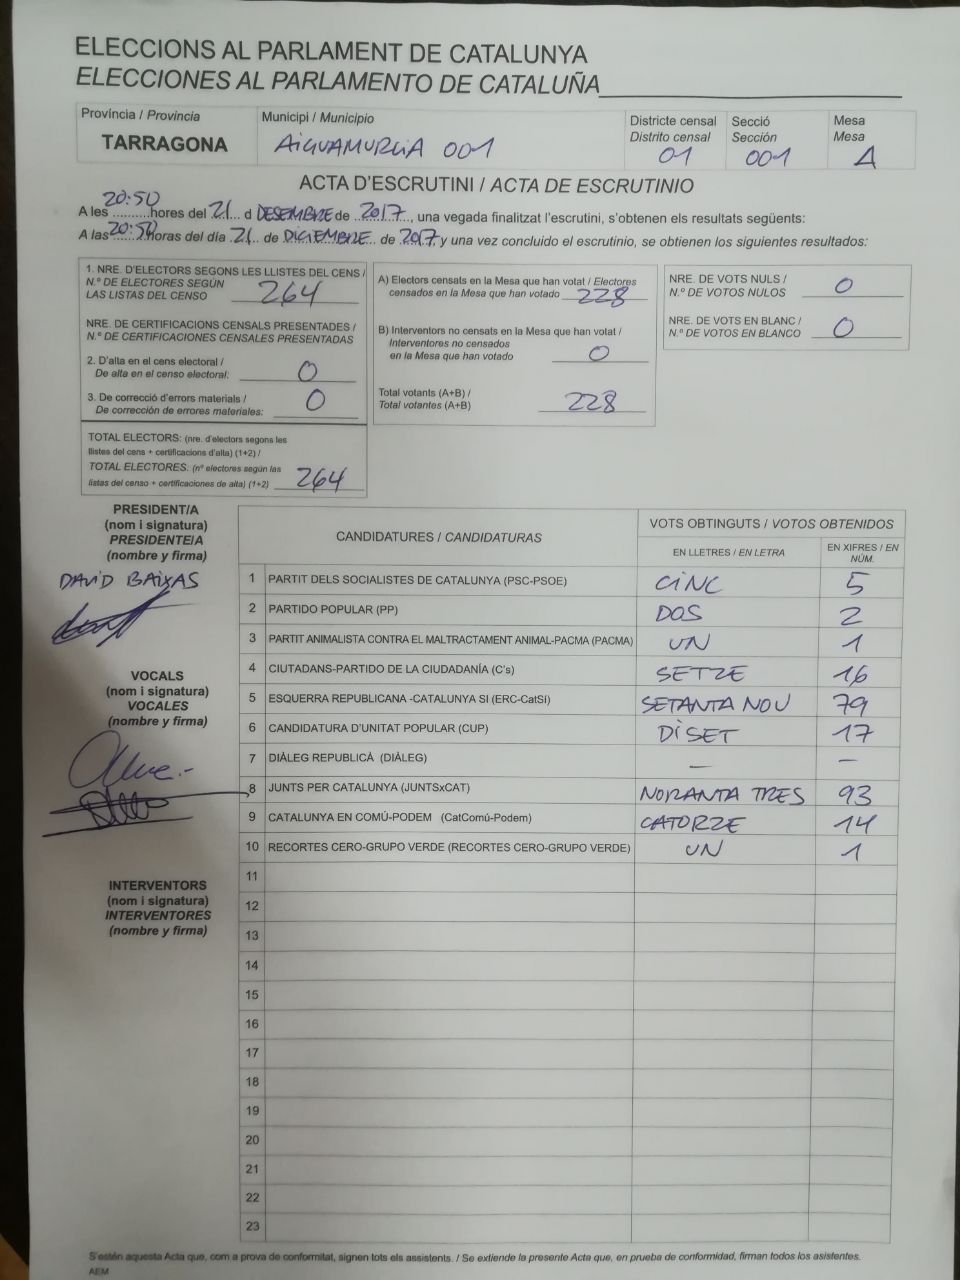 ELECCIONS AL PARLAMENT DE CATALUNYA
ELECCIONES AL PARLAMENTO DE CATALUÑA
Província / Provincia
TARRAGONA
Municipi / Municipio
AIGUAMURCIA 001
Districte censal
Distrito censal
01
Secció
Sección
001
Mesa
Mesa
A
ACTA D'ESCRUTINI / ACTA DE ESCRUTINIO
A les 20:50 hores del 21 d DESEMBRE de 2017, una vegada finalitzat l'escrutini, s'obtenen els resultats següents:
A las 20:50 horas del día 21 de DICIEMBRE de 2017 y una vez concluido el escrutinio, se obtienen los siguientes resultados:
1. NRE. D'ELECTORS SEGONS LES LLISTES DEL CENS /
N.º DE ELECTORES SEGÚN
LAS LISTAS DEL CENSO 264
NRE. DE CERTIFICACIONS CENSALS PRESENTADES /
N.º DE CERTIFICACIONES CENSALES PRESENTADAS
2. D'alta en el cens electoral /
De alta en el censo electoral: 0
3. De correcció d'errors materials /
De corrección de errores materiales: 0
TOTAL ELECTORS: (nre. d'electors segons les
llistes del cens + certificacions d'alta) (1+2) /
TOTAL ELECTORES: (nº electores según las
listas del censo + certificaciones de alta) (1+2) 264
A) Electors censats en la Mesa que han votat / Electores
censados en la Mesa que han votado 228
B) Interventors no censats en la Mesa que han votat /
Interventores no censados
en la Mesa que han votado 0
Total votants (A+B) /
Total votantes (A+B) 228
NRE. DE VOTS NULS /
N.º DE VOTOS NULOS 0
NRE. DE VOTS EN BLANC /
N.º DE VOTOS EN BLANCO 0
PRESIDENT/A
(nom i signatura)
PRESIDENTE/A
(nombre y firma)
DAVID BAIXAS
VOCALS
(nom i signatura)
VOCALES
(nombre y firma)
INTERVENTORS
(nom i signatura)
INTERVENTORES
(nombre y firma)
CANDIDATURES / CANDIDATURAS
VOTS OBTINGUTS / VOTOS OBTENIDOS
EN LLETRES / EN LETRA
EN XIFRES / EN
NÚM.
1 PARTIT DELS SOCIALISTES DE CATALUNYA (PSC-PSOE) CINC 5
2 PARTIDO POPULAR (PP) DOS 2
3 PARTIT ANIMALISTA CONTRA EL MALTRACTAMENT ANIMAL-PACMA (PACMA) UN 1
4 CIUTADANS-PARTIDO DE LA CIUDADANÍA (C's) SETZE 16
5 ESQUERRA REPUBLICANA -CATALUNYA SI (ERC-CatSí) SETANTA NOU 79
6 CANDIDATURA D'UNITAT POPULAR (CUP) DISET 17
7 DIÀLEG REPUBLICÀ (DIÀLEG) — —
8 JUNTS PER CATALUNYA (JUNTSxCAT) NORANTA TRES 93
9 CATALUNYA EN COMÚ-PODEM (CatComú-Podem) CATORZE 14
10 RECORTES CERO-GRUPO VERDE (RECORTES CERO-GRUPO VERDE) UN 1
11
12
13
14
15
16
17
18
19
20
21
22
23
S'estén aquesta Acta que, com a prova de conformitat, signen tots els assistents. / Se extiende la presente Acta que, en prueba de conformidad, firman todos los asistentes.
AEM